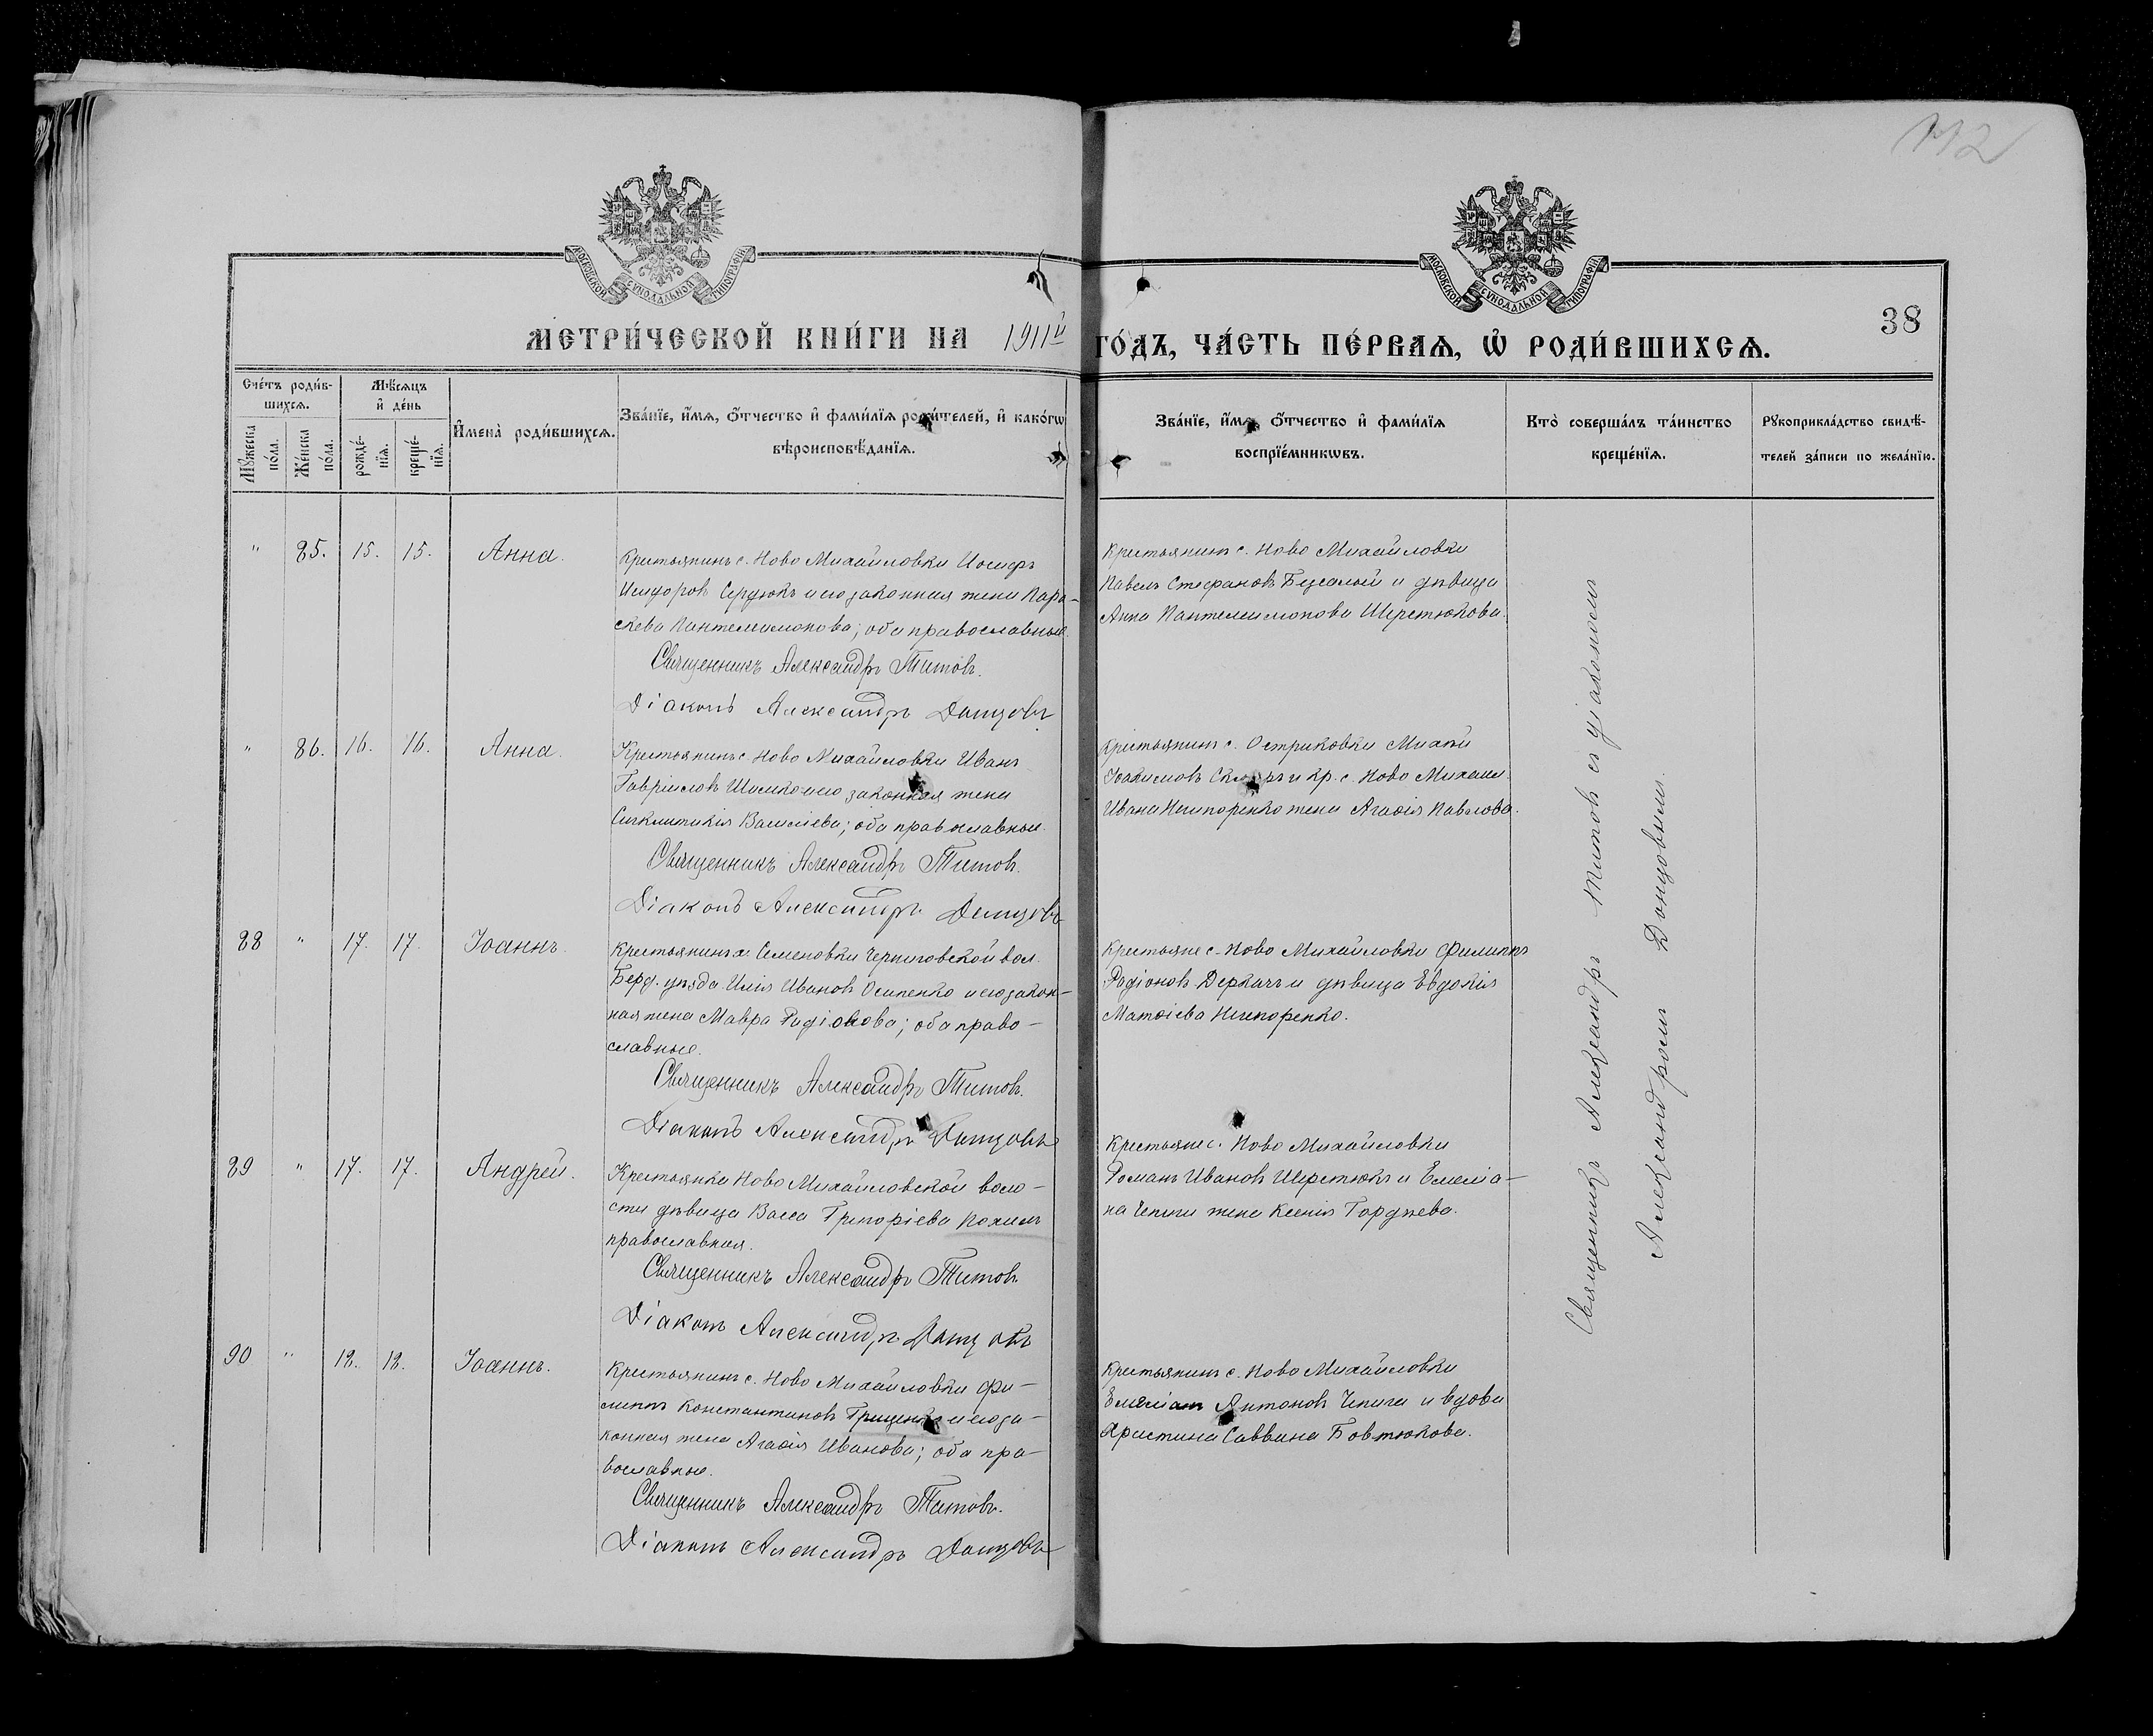 112
МОСКОВСКОЙ СѴНОДАЛЬНОЙ ТИПОГРАФІИ
МОСКОВСКОЙ СѴНОДАЛЬНОЙ ТИПОГРАФІИ
38
МЕТРИ́ЧЕСКОЙ КНИ́ГИ НА 1911й ГО́ДЪ, ЧА́СТЬ ПЕ́РВАѦ, Ѡ҆ РОДИ́ВШИХСѦ.
Сче́тъ роди́в-
шихсѧ.
Мꙋ́жеска по́ла.
Же́нска по́ла.
Мѣ́сѧцъ
и҆ де́нь
рожде́-
нїѧ.
креще́-
нїѧ.
И҆мена̀ роди́вшихсѧ.
Зва́нїе, и҆́мѧ, ѻ҆́тчество и҆ фами́лїѧ роди́телей, и҆ како́гѡ
вѣроисповѣ́данїѧ.
Зва́нїе, и҆́мѧ, ѻ҆́тчество и҆ фами́лїѧ
воспрїе́мникѡвъ.
Кто̀ соверша́лъ та́инство
креще́нїѧ.
Рꙋкоприкла́дство свидѣ́-
телей за́писи по жела́нїю.
" 85. 15. 15. Анна.
Крестьянинъ с. Ново Михайловки Іосифъ
Исидоровъ Сердюкъ и его законная жена Пара-
скева Пантелеимонова; оба православные.
Священникъ Александръ Титовъ.
Діаконъ Александръ Донцовъ
Крестьянинъ с. Ново Михайловки
Павелъ Стефановъ и дѣвица
Анна Пантелеимонова Шерстюкова.
" 86. 16. 16. Анна.
Крестьянинъ с. Ново Михайловки Иванъ
Гавріиловъ и его законная жена
Синклитикія Василіева; оба православные.
Священникъ Александръ Титовъ.
Діаконъ Александръ Донцовъ
Крестьянинъ с. Остриковки
Іоакимовъ и кр. с. Ново Михаил.
Ивана Нечипоренко жена Агаѳія Павлова.
88 " 17. 17. Іоаннъ.
Крестьянинъ с. Семеновки Черниговской вол.
Берд. уѣзда Илія Ивановъ Осипенко и его закон-
ная жена Мавра Родіонова; оба право-
славные.
Священникъ Александръ Титовъ.
Діаконъ Александръ Донцовъ
Крестьяне с. Ново Михайловки Филиппъ
Родіоновъ Деркачъ и дѣвица Евдокія
Матѳіева Нечипоренко.
89 " 17. 17. Андрей.
Крестьянка Ново Михайловской воло-
сти дѣвица Васса Григоріева Похилъ
православная.
Священникъ Александръ Титовъ
Діаконъ Александръ Донцовъ
Крестьяне с. Ново Михайловки
Романъ Ивановъ Шерстюкъ и Емеліа-
на Чепиги жена Ксенія Гордѣева.
90 " 18. 18. Іоаннъ.
Крестьянинъ с. Ново Михайловки Фи-
липпъ Константиновъ Гриценко и его за-
конная жена Агаѳія Иванова; оба пра-
вославные.
Священникъ Александръ Титовъ.
Діаконъ Александръ Донцовъ
Крестьянинъ с. Ново Михайловки
Емеліанъ Антоновъ Чепига и вдова
Христина Саввина Бовтюкова.
Священникъ Александръ Титовъ съ діакономъ
Александромъ Донцовымъ.